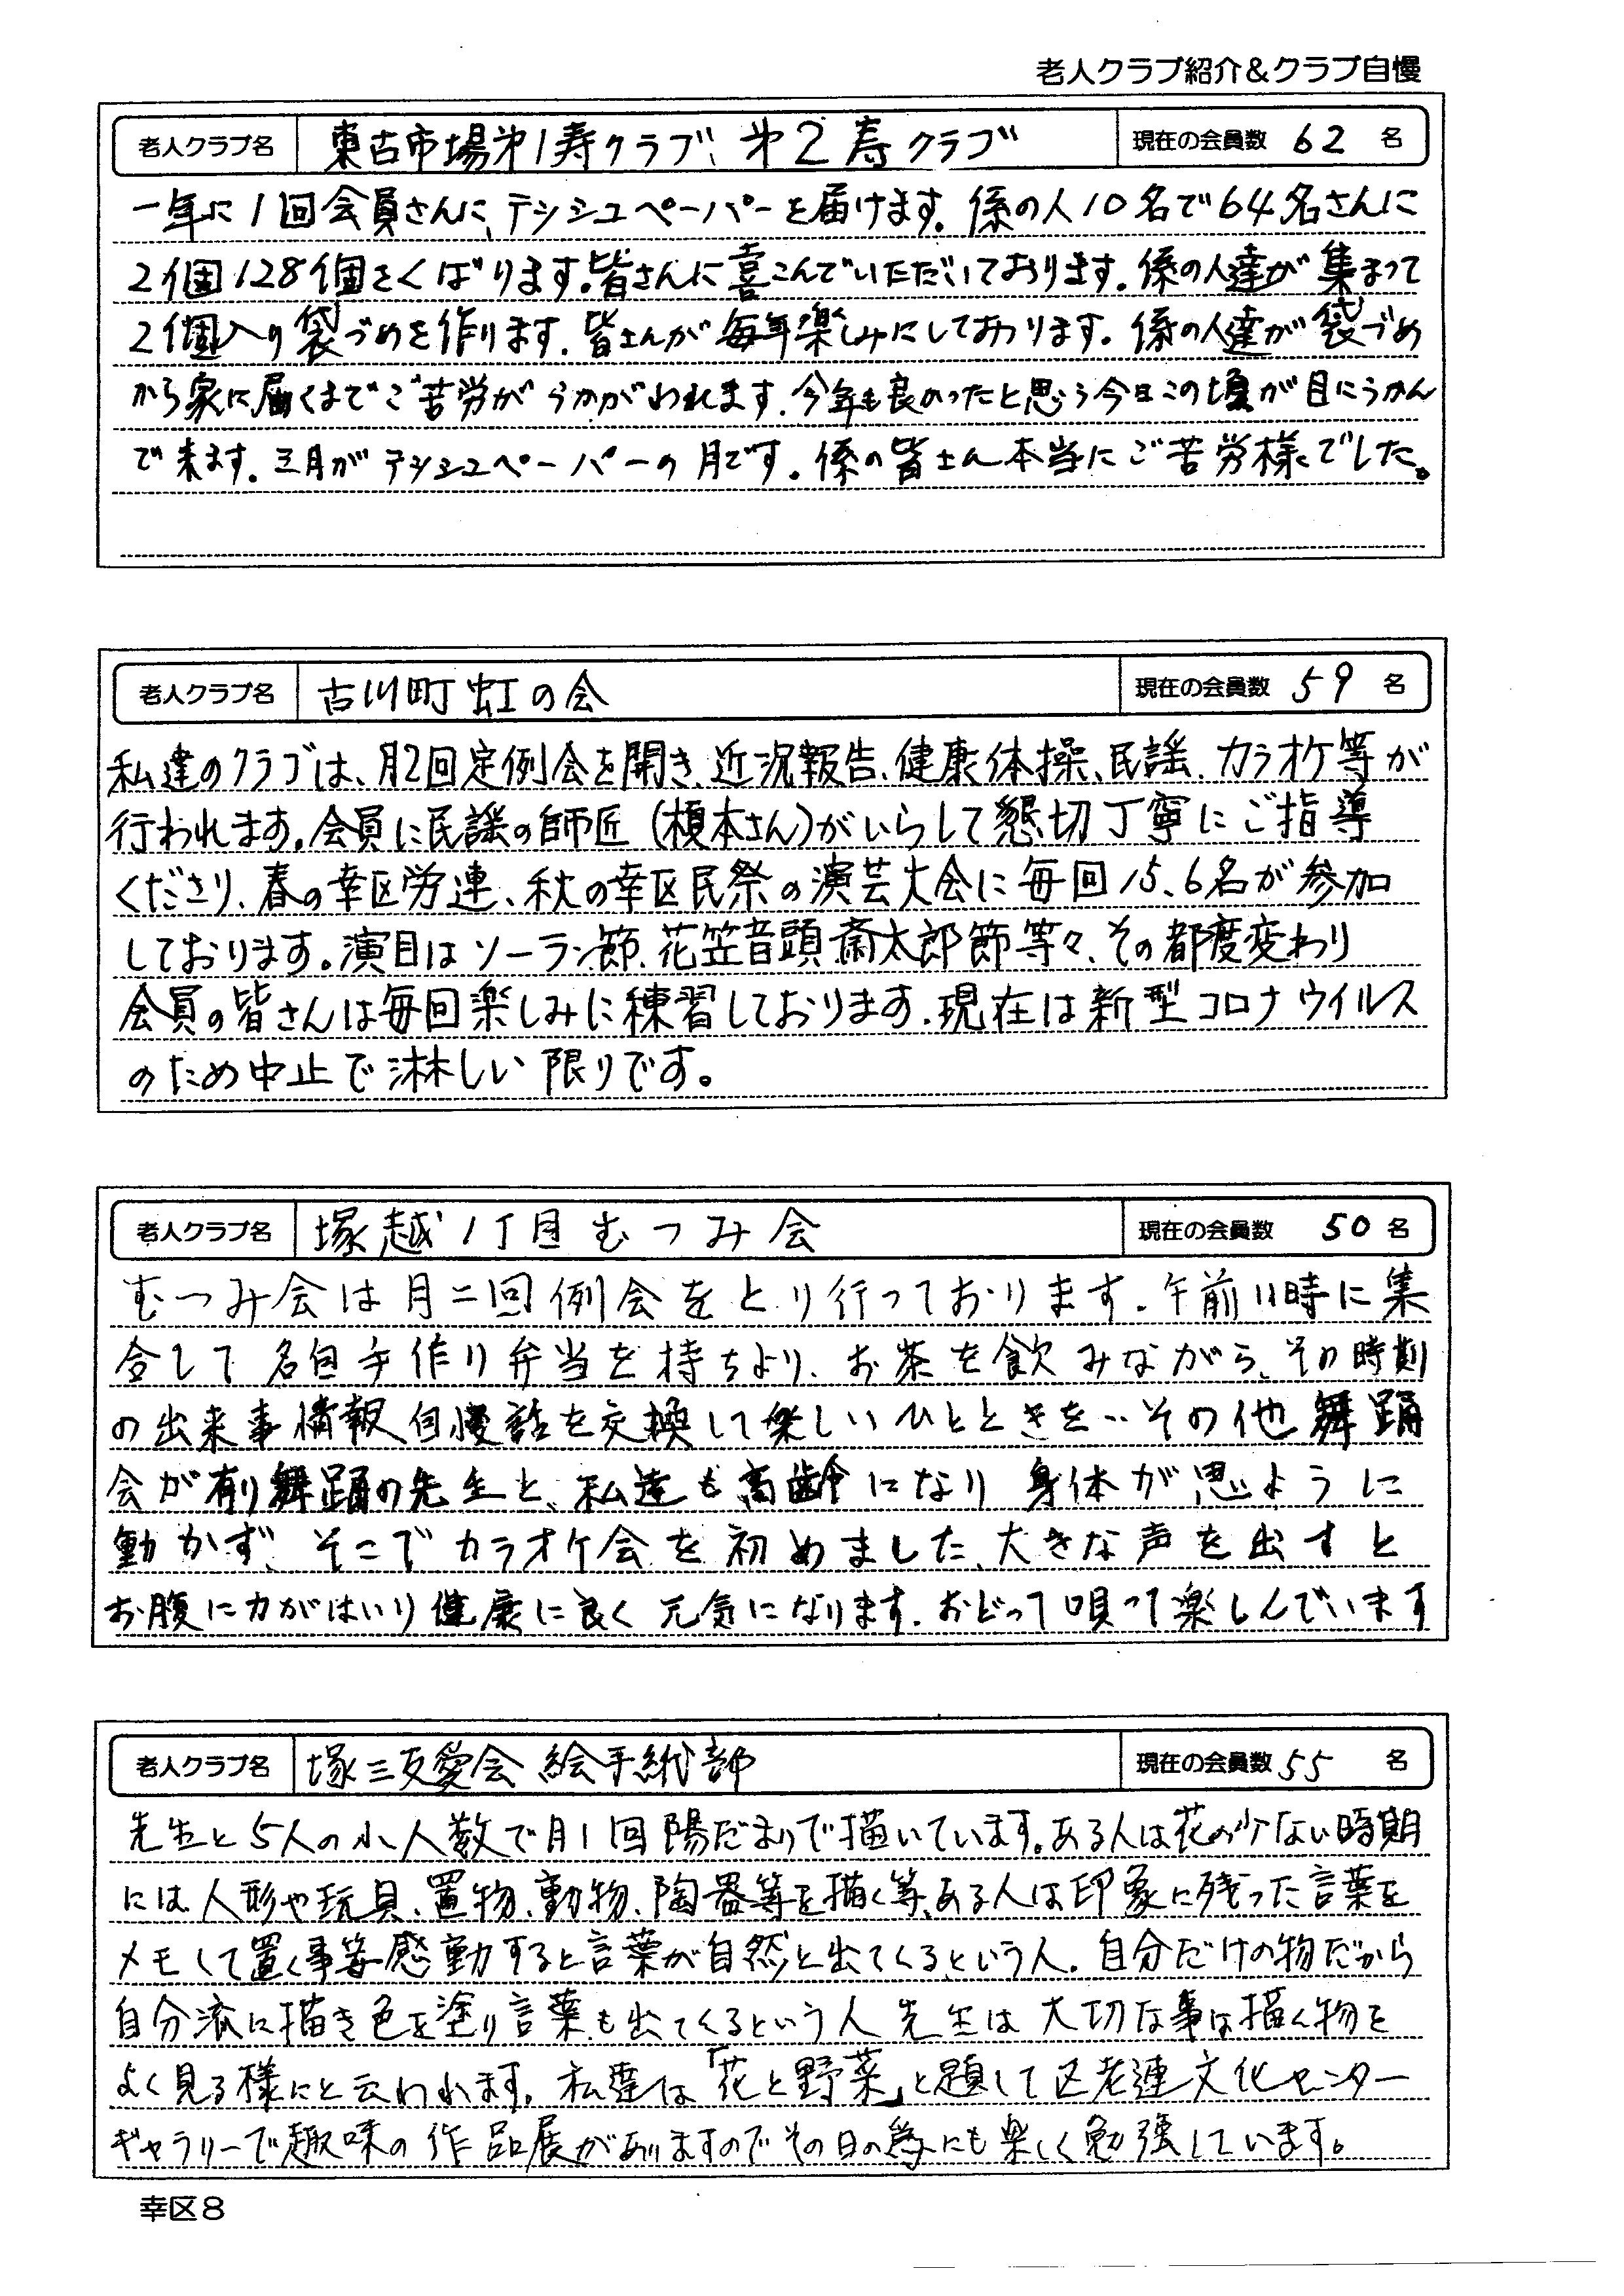 老人クラブ紹介＆クラブ自慢
老人クラブ名 東古市場第1寿クラブ、第2寿クラブ 現在の会員数 62 名
一年に1回会員さんに、テシシュペーパーを届けます。係の人10名で64名さんに
2個128個をくばります。皆さんに喜こんでいただいております。係の人達が集まって
2個入り袋づめを作ります。皆さんが毎年楽しみにしております。係の人達が袋づめ
から家に届くまでご苦労がうかがわれます。今年も良かったと思う今日この頃が目にうかん
で来ます。三月がテシシュペーパーの月です。係の皆さん本当にご苦労様でした。
老人クラブ名 古川町虹の会 現在の会員数 59 名
私達のクラブは、月2回定例会を開き、近況報告、健康体操、民謡、カラオケ等が
行われます。会員に民謡の師匠（榎本さん）がいらして懇切丁寧にご指導
くださり、春の幸区労連、秋の幸区民祭の演芸大会に毎回15、6名が参加
しております。演目はソーラン節、花笠音頭、斎太郎節等々、その都度変わり
会員の皆さんは毎回楽しみに練習しております。現在は新型コロナウイルス
のため中止で淋しい限りです。
老人クラブ名 塚越1丁目むつみ会 現在の会員数 50 名
むつみ会は月二回例会をとり行っております。午前11時に集
合して名自手作り弁当を持ちより、お茶を飲みながら、その時刻
の出来事情報自慢話を交換して楽しいひとときを‥その他舞踊
会が有り舞踊の先生と、私達も高齢になり 身体が思ように
動かず、そこでカラオケ会を初めました、大きな声を出すと
お腹に力がはいり健康に良く元気になります。おどって唄って楽しんでいます
老人クラブ名 塚三友愛会 絵手紙部 現在の会員数 55 名
先生と5人の小人数で月1回陽だまりで描いています。ある人は花の少ない時期
には人形や玩具、置物、動物、陶器等を描く等、ある人は印象に残った言葉を
メモして置く事等感動すると言葉が自然と出てくるという人。自分だけの物だから
自分流に描き色を塗り言葉も出てくるという人 先生は大切な事は描く物を
よく見る様にと云われます。私達は「花と野菜」と題して区老連文化センター
ギャラリーで趣味の作品展がありますのでその日の為にも楽しく勉強しています。
幸区8